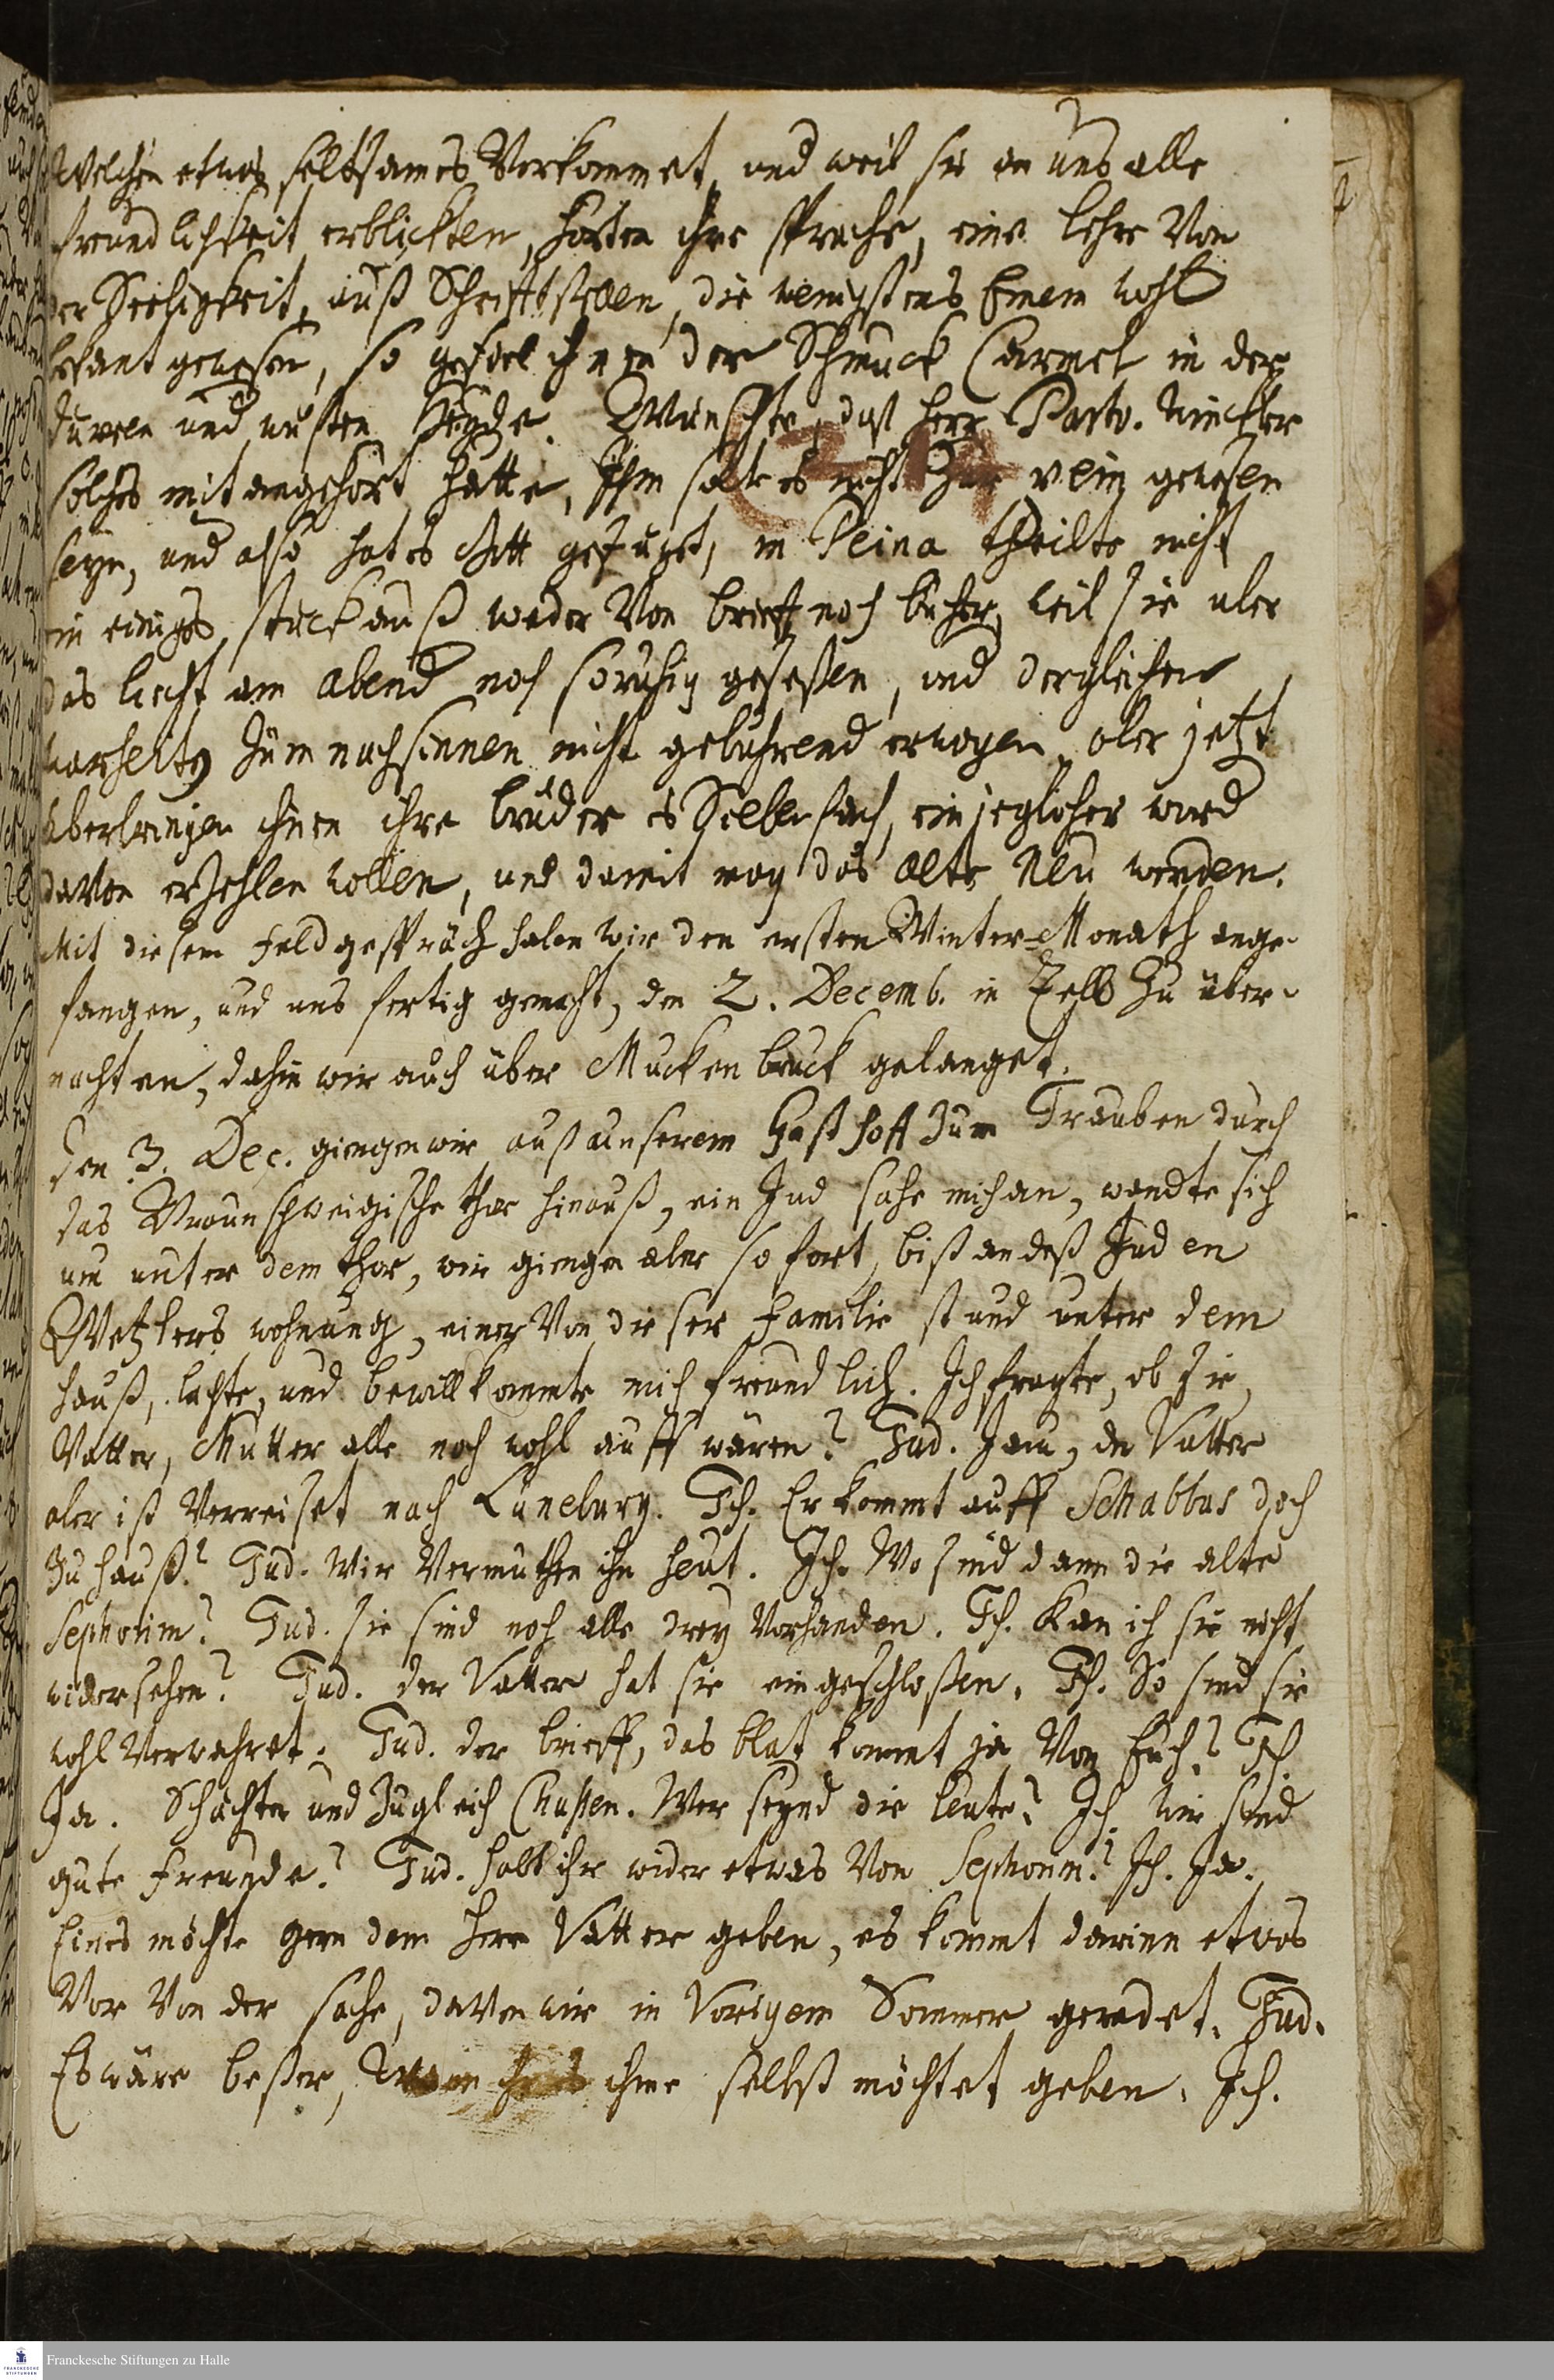 welchen etwas seltsames Vorkommet, und weil sie an uns alle
freundlichkeit erblickten, hörten ihre sprache, eine lehre Von
der Seeligkeit, auß Schrifftstellen, die wenigstens Einem wohl
bekant gewesen, so gefiel ihnen der Schmuck Carmel in der
durren und wusten Heyde. Wünschte, daß Herr Pastor
solches mit angehört hatte, Ihm solte es nicht zur pein gewesen
seyn, und also hat es Gott gefuget, in Peina theilte nicht
ein einiges stuck auß weder Von brieff noch bucher, weil sie uber
das liecht am abend noch so ruhig geseßen, und dergleichen
warheiten zum nachsinnen nicht gebuhrend erwogen, aber jetzt
uberbringen ihnen ihre bruder es Selber nach, ein jeglicher wird
davon erzehlen wollen, und damit mag das alte Neu werden.
Mit diesem feldgespräch haben wir den ersten Winter-Monath ange-
fangen, und uns fertig gemacht, den 2. Decemb. in Zell zu über-
nachten, dahin wir auch über Muckenbruck gelanget.
Den 3. Dec. giengen wir auß unserem Gasthoff zum Trauben durch
das Braunschweigische thor hinauß, ein Jud sahe mich an, wandte sich
um unter dem thor, wir giengen aber so fort, biß an deß Juden
Wetzlers wohnung, einer Von dieser Familie stund unter dem
hauß, lachte, und bewillkommte mich freundlich. Ich fragte, ob sie,
Vatter, Mutter alle noch wohl auff wären? Jud. Jau, der Vatter
aber ist Verreiset nach Lüneburg. Ich. Er kommt auff Schabbas doch
zu hauß? Jud. Wir Vermuthen ihn heut. Ich. Wo sind dann die alte
Sephorim? Jud. sie sind noch alle drey Vorhanden. Ich. Kan ich sie nicht
wider sehen? Jud. der Vatter hat sie eingeschloßen. Ich. So sind sie
wohl Verwahret. Jud. der brieff, das blat kommt ja Von Euch? Ich.
Ja. Schachter und zugleich Chassen. Wer seynd die leute? Ich. wir sind
gute freunde? Jud. habt ihr wider etwas Von Sephorim? Ich. Ja.
Eines möchte gern dem Herr Vatter geben, es kommt darinn etwas
Vor Von der sache, davon wir in Vorigem Sommer geredet. Jud.
Es wäre beßer, wann ihr es ihme selbst möchtet geben. Ich.
Franckesche Stiftungen zu Halle